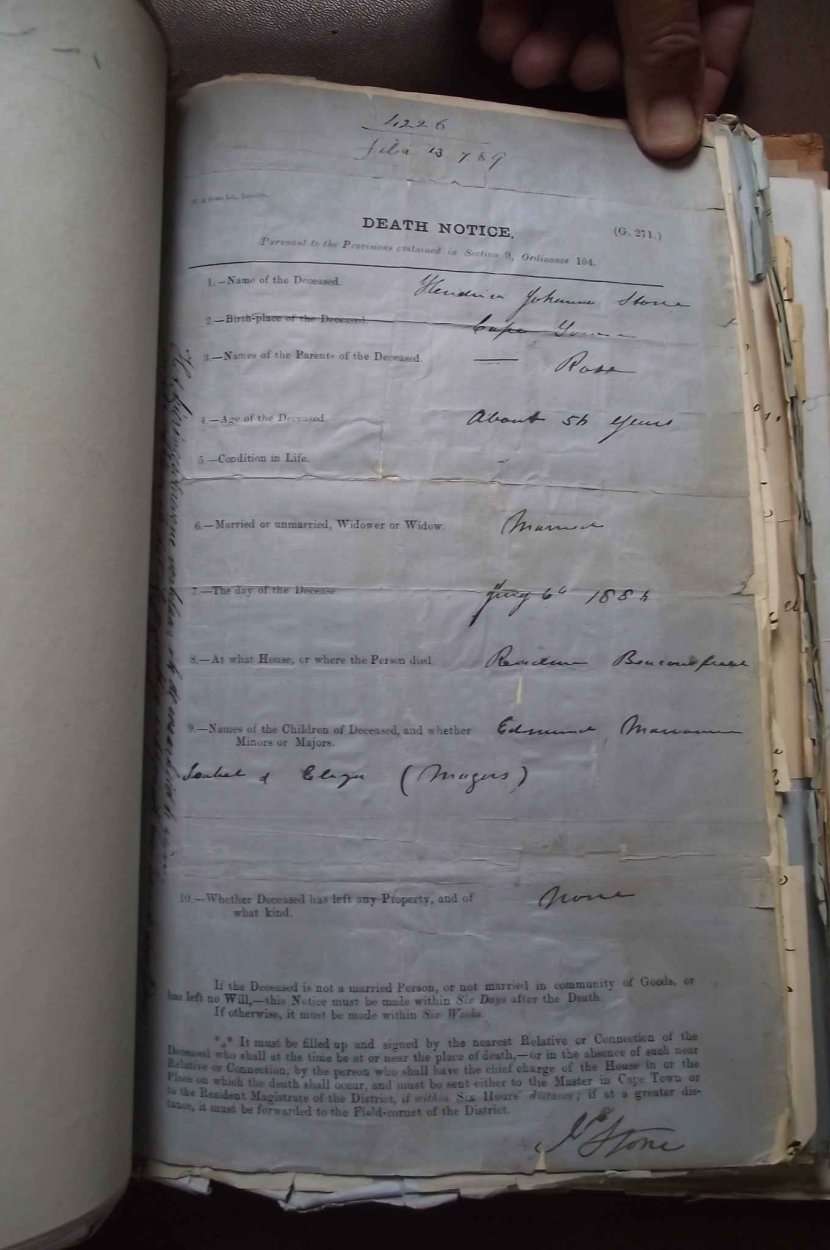 4226
13 7 89
DEATH NOTICE.
(G. 271.)
Pursuant to the Provisions contained in Section 9, Ordinance 104.
1.—Name of the Deceased. Hendrica Johanna Stone
2.—Birth-place of the Deceased Cape Town
3.—Names of the Parents of the Deceased. — Ross
4.—Age of the Deceased. About 56 years
5.—Condition in Life.
6.—Married or unmarried, Widower or Widow. Married
7.—The day of the Decease. 6th 188
8.—At what House, or where the Person died. Residence Beaconsfield
9.—Names of the Children of Deceased, and whether Edmund
Minors or Majors.
Isabel & Eliza (Majors)
10.—Whether Deceased has left any Property, and of None
what kind.
If the Deceased is not a married Person, or not married in community of Goods, or
has left no Will,—this Notice must be made within Six Days after the Death.
If otherwise, it must be made within Six Weeks.
*** It must be filled up and signed by the nearest Relative or Connection of the
Deceased who shall at the time be at or near the place of death,—or in the absence of such near
Relative or Connection, by the person who shall have the chief charge of the House in or the
Place on which the death shall occur, and must be sent either to the Master in Cape Town or
to the Resident Magistrate of the District, if within Six Hours' distance; if at a greater dis-
tance, it must be forwarded to the Field-cornet of the District.
Stone